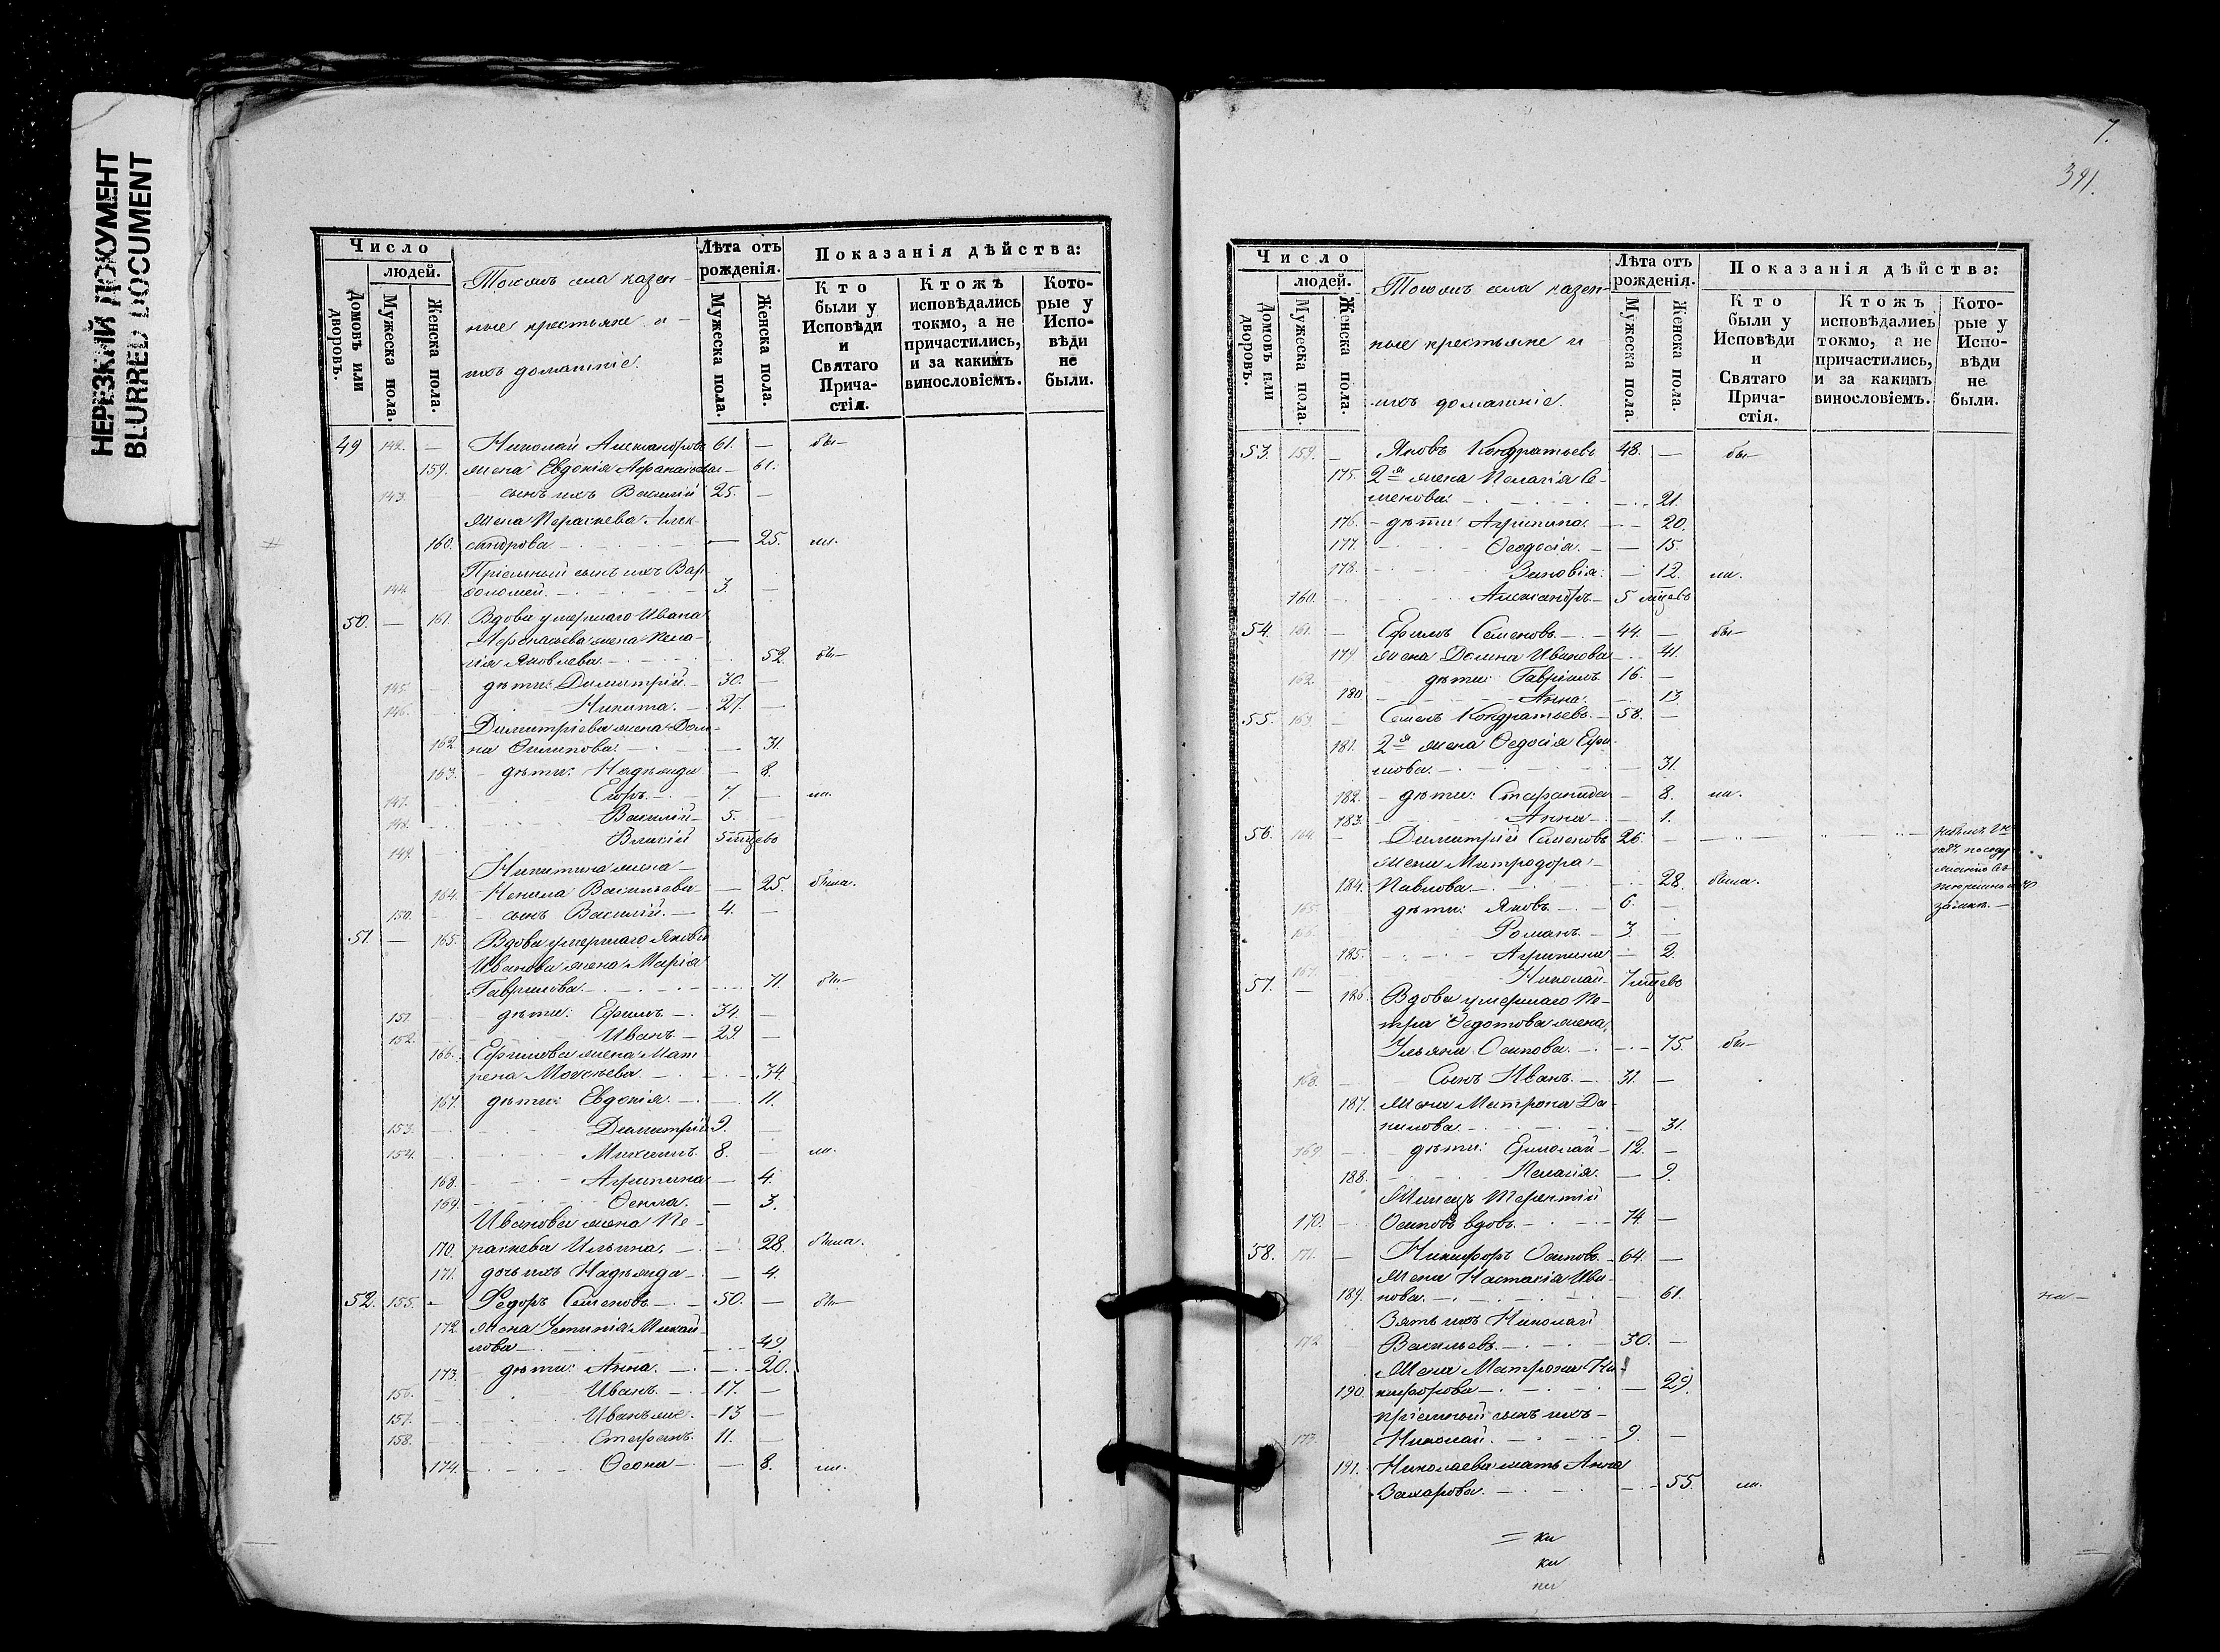 НЕРЕЗКИЙ ДОКУМЕНТ
BLURRED DOCUMENT
Число
людей.
Домовъ или дворовъ.
Мужеска пола.
Женска пола.
Тогожъ села казен-
ные крестьяне и
ихъ домашніе.
Лѣта отъ рожденія.
Мужеска пола.
Женска пола.
Показанія дѣйства:
Кто были у Исповѣди и Святаго Прича-стія.
Ктожъ исповѣдались токмо, а не причастились, и за какимъ винословіемъ.
Кото-рые у Испо-вѣди не были.
49 142. — Николай Александровъ 61. — бы—
159. жена Евдокія Афанасьева — 61.
143. — сынъ ихъ Василій 25. —
жена Параскева Алек-
160. сандрова — 25. ли.
Пріемный сынъ ихъ Вар-
144. — 3. —
50. — 161. Вдова умершаго Ивана
жена Пела-
гія Яковлева. — 52. бы—
145. — дѣти: Димитрій. — 30. —
146. Никита. — 27. —
Димитріева жена Дом-
162 на Филипова. — 31.
163. — дѣти: Надежда — 8.
147. Егоръ. — 7. — ли.
148. Василій — 5. —
149. 5 мѣсяцевъ
Никитина жена —
164. Васильева — 25. была.
150. — сынъ Василій. — 4. —
51. — 165. Вдова умершаго Якова
Иванова жена Марія
Гаврилова. — 71. бы—
151. — дѣти: Ефимъ — 34. —
152. Иванъ. — 29. —
166. Ефимова жена Мат-
рена Моисеева. — 34.
167. дѣти: Евдокія. — 11.
153. Димитрій 9. —
154. Михаилъ. 8. — ли.
168. Агрипина — 4.
169. Фекла. — 3.
Иванова жена Па-
170. раскева Ильина. — 28. была.
171. дочь ихъ Надежда — 4.
52. 155. — Ѳедоръ Семеновъ. — 50. — бы—
172 жена Устинія Михай-
лова — 49.
173. дѣти: Анна. — 20.
156. Иванъ. — 17. —
157. Иванъ же. — 13 —
158. Стефанъ. 11. —
174. — 8. ли.
7.
391.
Число
людей.
Домовъ или дворовъ.
Мужеска пола.
Женска пола.
Тогожъ села казен-
ные крестьяне и
ихъ домашніе.
Лѣта отъ рожденія.
Мужеска пола.
Женска пола.
Показанія дѣйства:
Кто были у Исповѣди и Святаго Прича-стія.
Ктожъ исповѣдались токмо, а не причастились, и за какимъ винословіемъ.
Кото-рые у Испо-вѣди не были.
53. 159. — Яковъ Кондратьевъ 48. — бы—
175. 2я жена Пелагія Се-
менова. — 21.
176. — дѣти: Агрипина. — 20.
177. Ѳеодосія. — 15.
178. Зиновія: — 12. ли.
160. Александръ — 5 мѣсяцевъ
54. 161. — Ефимъ Семеновъ. — 44. — бы—
179 жена Домна Иванова — 41.
162. — дѣти: Гавріилъ 16. —
180 Анна. — 13.
55. 163. — Семенъ Кондратьевъ. — 58. —
181. 2я жена Ѳедосія Ефи-
мова. — 31.
182. — дѣти: Степанида — 8. ли.
183. Анна — 1.
56. 164 — Димитрій Семеновъ 26. —
жена Митродора
184. Павлова. — 28. была.
165. дѣти: Яковъ. — 6. —
166. Романъ. — 3. —
185. Агрипина — 2.
167. Николай. 7 мѣсяцевъ
57. — 186. Вдова умершаго Пе-
тра Ѳедотова жена
Ульяна Осипова. — 75. бы—
168. — Сынъ Иванъ. — 31. —
187. жена Матрона Да-
нилова. — 31.
169 — дѣти: Ермолай — 12. —
188. Пелагія. — 9.
Терентій
170. Осиповъ вдовъ. — 74. —
58. 171. — Никифоръ Осиповъ. — 64. —
жена Настасія Ива-
189. нова. — 61.
Зять ихъ Николай
172 Васильевъ. — 30. —
жена Матрона Ни-
190. кифорова — 29.
пріемный сынъ ихъ —
173. Николай. — 9. —
191. Николаева мать Анна
Захарова. — 55. ли.
на—
= ки
ки